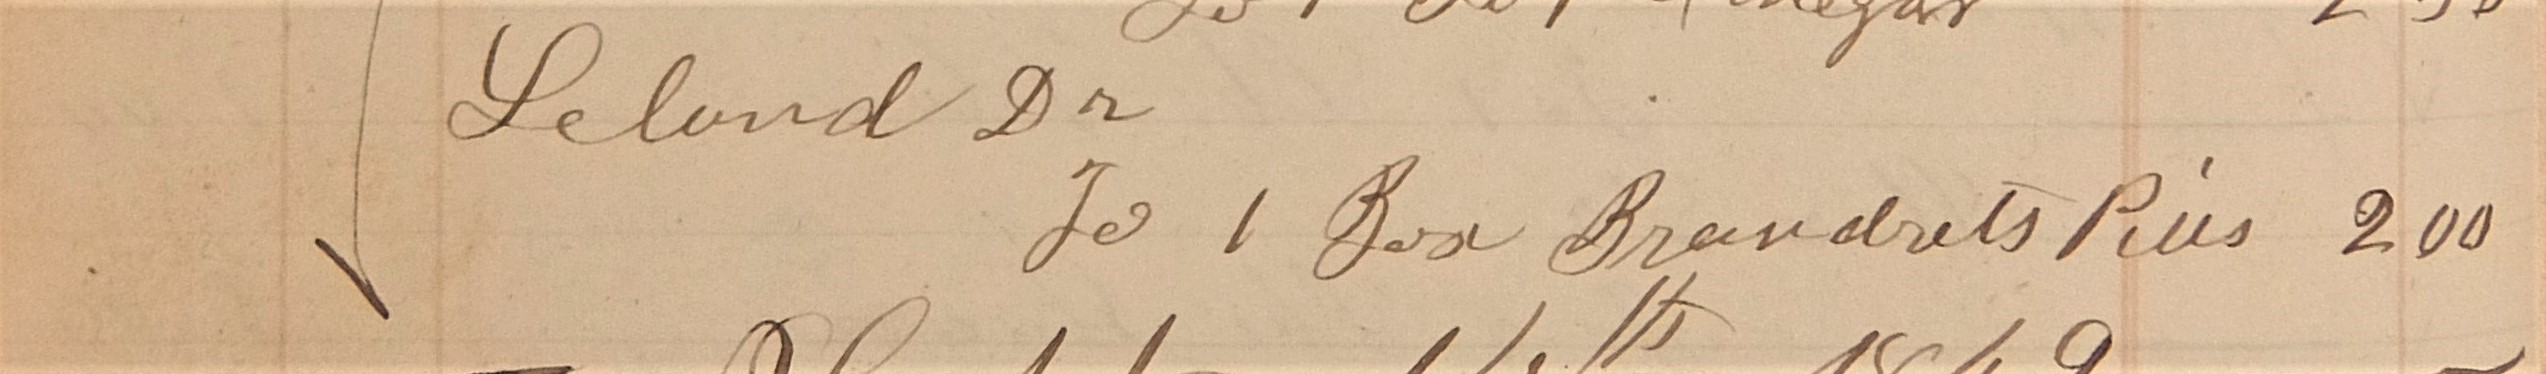 To 1 Do 1 Vinegar 2 50
Leland Dr
To 1 Box Brandrets Pills 2 00
14th 1869